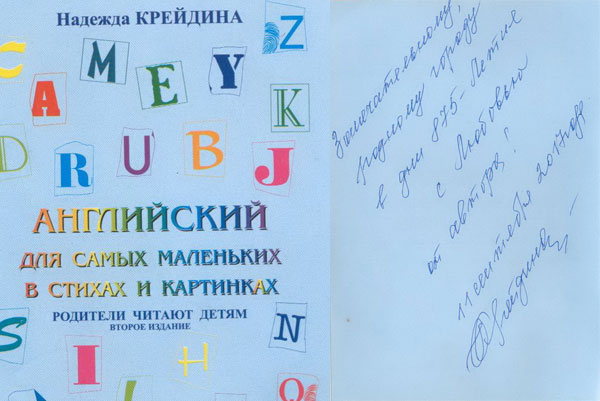 Надежда КРЕЙДИНА
Z
C A M E Y
K
D R U B J
АНГЛИЙСКИЙ
ДЛЯ САМЫХ МАЛЕНЬКИХ
В СТИХАХ И КАРТИНКАХ
РОДИТЕЛИ ЧИТАЮТ ДЕТЯМ
ВТОРОЕ ИЗДАНИЕ
S I H N
Q
Замечательному,
родному городу
в дни 875-летия
с Любовью
от автора!
11 сентября 2017 года
Крейдина